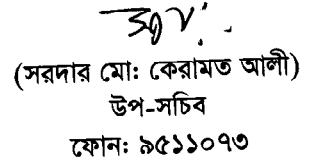 (সরদার মো: কেরামত আলী)
উপ-সচিব
ফোন: ৯৫১১০৭৩